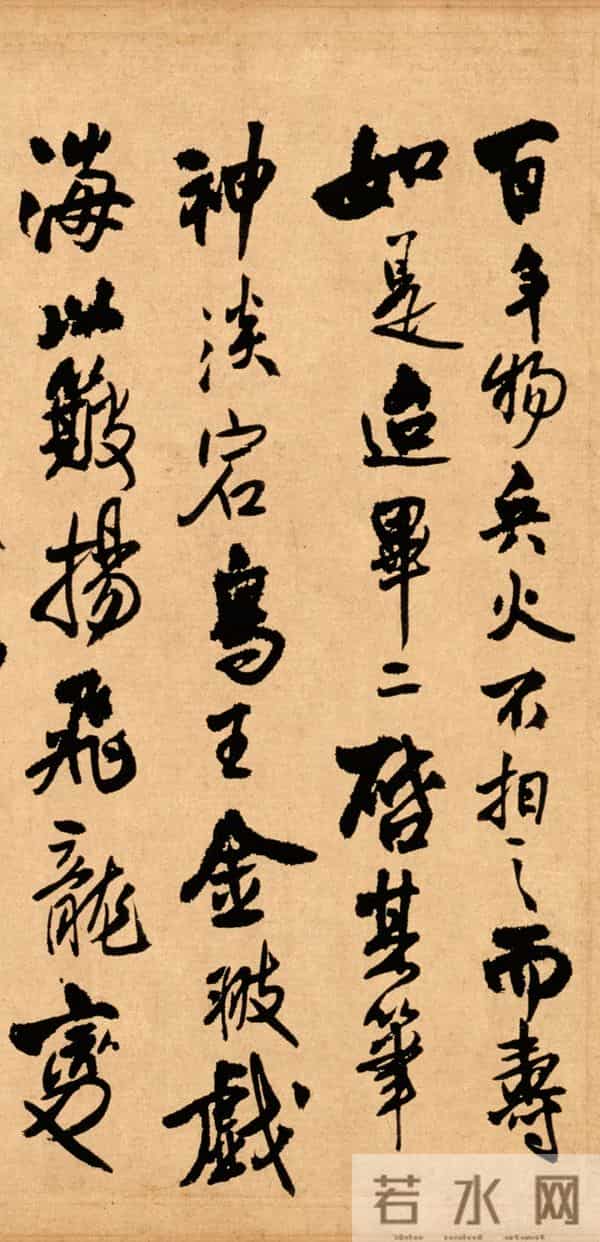 百年物兵火不之而壽
如是迨畢二啓其筆
神淡宕鳥王金翅戲
海以簸揚飛龍變
若水网